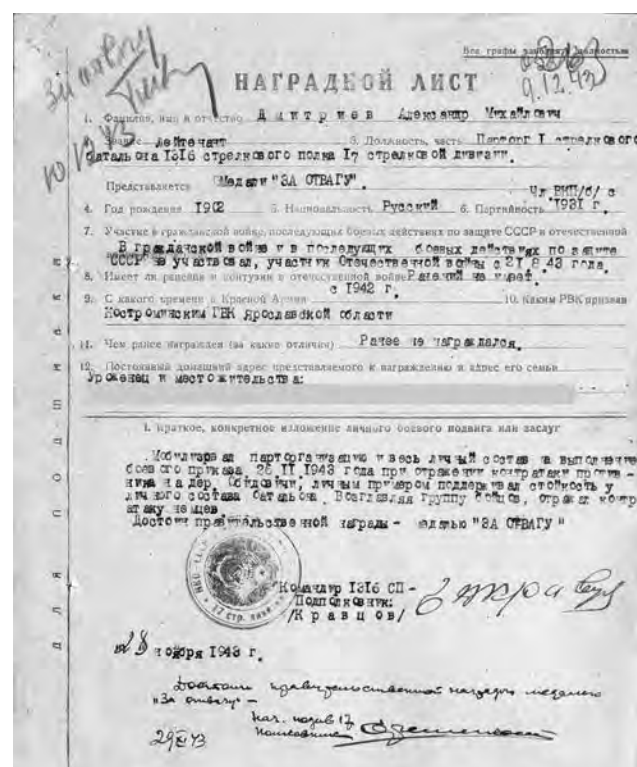 За отвагу
Все графы заполнять полностью
9.12.43
НАГРАДНОЙ ЛИСТ
10/12 43
1. Фамилия, имя и отчество Дмитриев Александр Михайлович
Звание лейтенант 3. Должность, часть Парторг I стрелкового
батальона 1316 стрелкового полка 17 стрелковой дивизии.
Представляется Медали "ЗА ОТВАГУ".
Чл ВКП/б/ с
4. Год рождения 1902 5. Национальность Русский 6. Партийность 1931 г.
7. Участие в гражданской войне, последующих боевых действиях по защите СССР и отечественной
В гражданской войне и в последующих боевых действиях по защите
"СССР" не участвовал, участник Отечественной войны с 21 8 43 года
8. Имеет ли ранения и контузии в отечественной войне Ранений не имеет.
с 1942 г.
9. С какого времени в Красной Армии 10. Каким РВК призван
Костроминским ГВК Ярославской области
11. Чем ранее награжден (за какие отличия) Ранее не награждался.
12. Постоянный домашний адрес представляемого к награждению и адрес его семьи
Уроженец и местожительства:
I. Краткое, конкретное изложение личного боевого подвига или заслуг
Мобилизовал парторганизацию и весь личный состав на выполнение
боевого приказа 26 II 1943 года при отражении контратаки против-
ника на дер. личным примером поддерживал стойкость у
личного состава батальона. Возглавляя группу бойцов, отражал контр
атаку немцев
Достоин правительственной награды - медалью "ЗА ОТВАГУ"
Командир 1316 СП -
Подполковник:
/Кравцов/
28 ноября 1943 г.
Достоин правительственной награды медалью
"За отвагу" -
Нач. 17
29 XI 43
Для подшивки